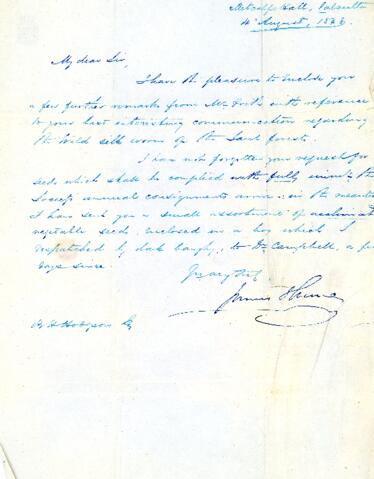 Metcalfe Hall, Calcutta
4 August, 1856.
My dear Sir,
I have the pleasure to enclose you
a few further remarks from Mr with reference
to your last interesting communication regarding
the Wild silk worm of the forest.
I have not forgotten your request for
seeds which shall be complied with fully when the
Society's annual consignments arrive; in the meantime
I have sent you a small assortment of acclimated
vegetable seed, enclosed in a box which I
despatched by dak banghy, to Dr Campbell, a few
days since.
James Hume
B H Hodgson Esq